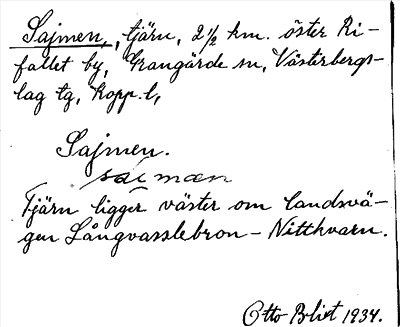 Sajmen, tjärn, 2½ km. öster Ri-
fallet by, Grangärde sn, Västerbergs-
lag tg, Kopp. l,
Sajmen.
saimæn
Tjärn ligger väster om landsvä-
gen Långvasslebron - Nitthvarn.
Otto Blixt 1934.